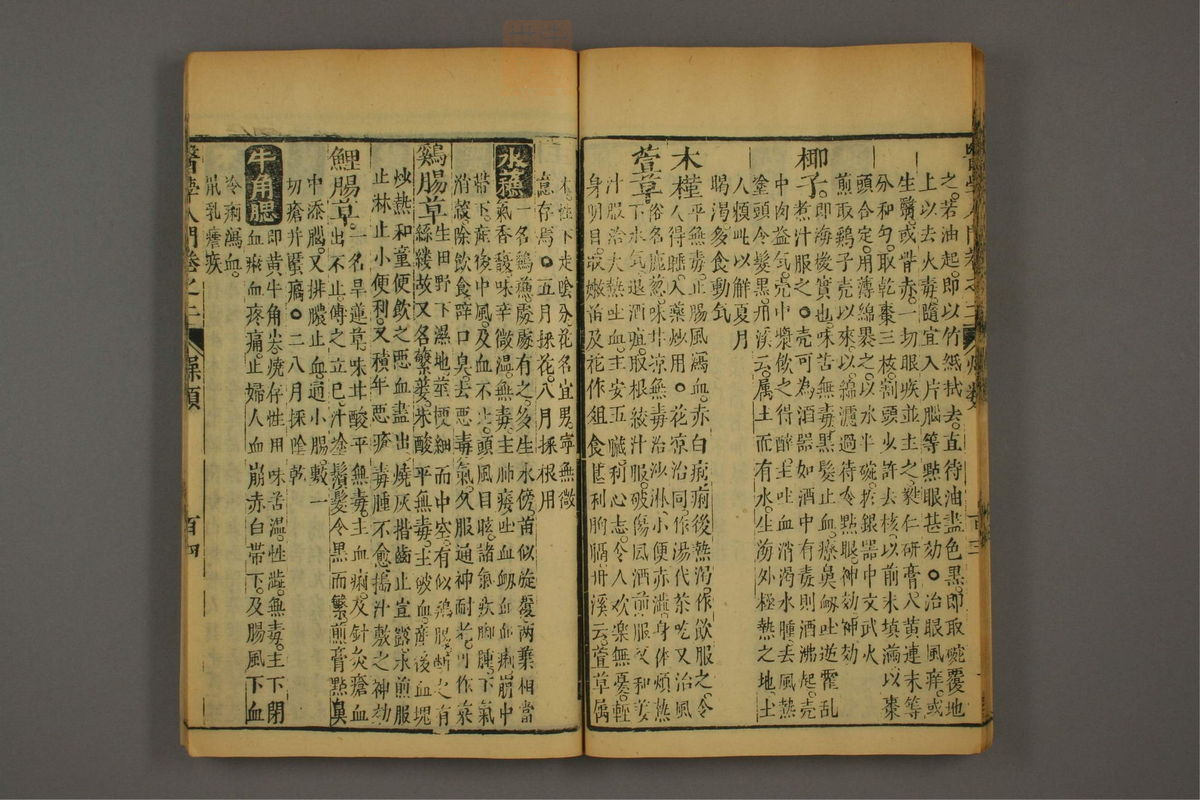 醫學入門卷之二 燥類 百三
之。若油起。即以竹紙拭去。直待油盡色黑。即取碗覆地
上以去火毒隨宜入片腦等點眼甚効○治眼風痒。或
生翳。或眥赤。一切眼疾並主之。蕤仁研膏入黃連末等
分和勻。取乾棗三枚。割頭少許去核。以前末填滿以棗
頭合定。用薄綿裹之。以水半碗。於銀器中文武火
煎取鷄子殼以來。以綿濾過待冷點眼。神効神効
椰子。即海椶實也。味苦無毒。黑髮止血。療鼻衂吐逆霍亂
煮汁服之。○殼可為酒器如酒中有毒則酒沸起。殼
中肉益氣。殼中漿飲之得醉。主吐血消渴水腫。去風熱
塗頭令髮黑。丹溪云。属土而有水。生海外極熱之地。土
人頼此以解夏月
暍渴多食動気
木槿。平無毒。止腸風瀉血。赤白痢。痢後熱渴。作飲服之。令
人得睡。入藥炒用。○花凉治同。作湯代茶吃又治風
萱草。俗名鹿葱。味甘凉無毒治沙淋。小便赤澁。身体煩熱
下水気。退酒疸。取根絞汁服。破傷風酒煎服又和姜
汁服治大熱衂血。主安五臓。利心志。令人欢樂無憂。輕
身明目。取嫩苗及花作俎食甚利胸膈丹溪云。萱草属
木。性下走陰分花名宜男寧無微
意存焉。○五月採花。八月採根用
水蘇 一名鷄蘇。處處有之。多生水傍苗似旋覆兩葉相當
氣香馥味辛微溫。無毒主肺痿吐血衂血血痢崩中
帶下。産後中風。及血不止。頭風目眩。諸氣疾脚腫。下氣
消榖。除飲食辟口臭去惡毒氣。久服通神耐老。可作菜
鷄腸草。生田野下濕地莖梗細而中空。有似鷄腸。断之有
絲縷故又名蘩蔞。味酸平無毒。主破血。産後血塊
炒熱和童便飲之惡血盡出。燒灰揩齒止宣露。水煎服
止淋止小便利。又積年惡瘡毒腫不愈搗汁敷之神効
鯉腸草。一名旱蓮草味甘酸平無毒。主血痢。及針灸瘡血
出不止。傅之立已。汁塗鬚髮令黑而繁。煎膏點鼻
中添腦。又排膿止血。通小腸。敷一
切瘡并蚕瘑。○二八月採陰乾
牛角腮 即黃牛角尖燒存性用味苦溫。性澁。無毒。主下閉
血瘀血疼痛。止婦人血崩赤白帶下。及腸風下血
冷痢瀉血。
鼠乳痔疾
醫學入門卷之二 燥類 百四